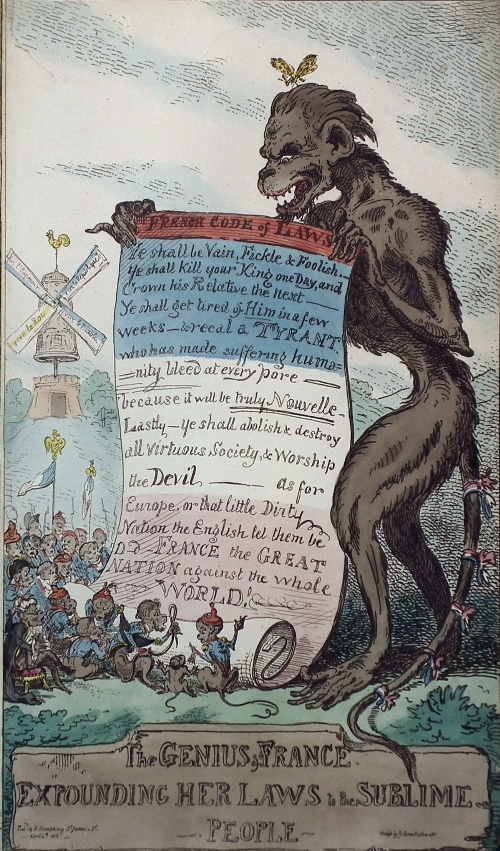 FRENCH CODE of LAWS
Ye shall be Vain, Fickle & Foolish.—
Ye shall kill your King one Day, and
Crown his Relative the next —
Ye shall get tired of Him in a few
weeks — & recal a TYRANT
who has made suffering huma-
—nity bleed at every pore —
because it will be truly Nouvelle—
Lastly — ye shall abolish & destroy
all virtuous Society, & Worship
the Devil — as for
Europe, or that little Dirty
Nation the English let them be
FRANCE the GREAT
NATION against the whole
WORLD!
Vive le Roi
The GENIUS of FRANCE
EXPOUNDING HER LAWS to the SUBLIME
PEOPLE—
Pub by H Humphrey St James's St